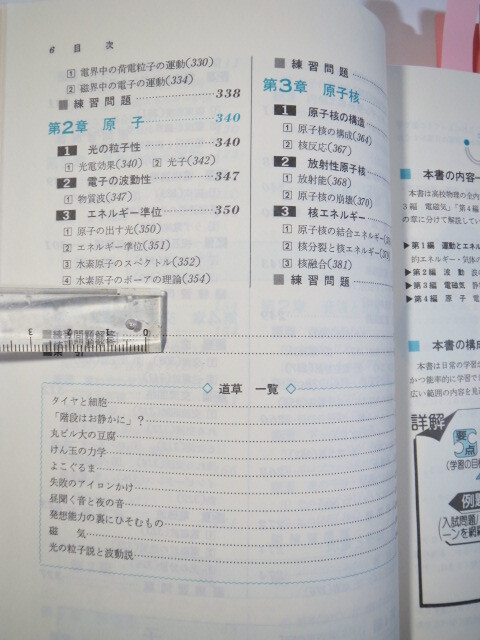 6 目次
1 電界中の荷電粒子の運動(330)
2 磁界中の電子の運動(334)
練習問題 338
第2章 原子 340
1 光の粒子性 340
1 光電効果(340) 2 光子(342)
2 電子の波動性 347
1 物質波(347)
3 エネルギー準位 350
1 原子の出す光(350)
2 エネルギー準位(351)
3 水素原子のスペクトル(352)
4 水素原子のボーアの理論(354)
練習問題
第3章 原子核
1 原子核の構造
1 原子核の構成(364)
2 核反応(367)
2 放射性原子核
1 放射能(368)
2 原子核の崩壊(370)
3 核エネルギー
1 原子核の結合エネルギー
2 核分裂と核エネルギー
3 核融合(381)
練習問題
3 2 1 0
道草 一覧
タイヤと細胞
「階段はお静かに」?
丸ビル大の豆腐
けん玉の力学
よこぐるま
失敗のアイロンかけ
昼聞く音と夜の音
発想能力の裏にひそむもの
磁気
光の粒子説と波動説
本書の内容
本書は高校物理の全内
の章に分けて解説してい
▶第1編 運動とエネル
的エネルギー・気体の
▶第2編 波動 波の
▶第3編 電磁気 静
▶第4編 原子 電
本書の構成
本書は日常の学習が
かつ能率的に学習で
広い範囲の内容を見
詳解
要点
(学習の自標
例題
入試問題
ーンを網羅